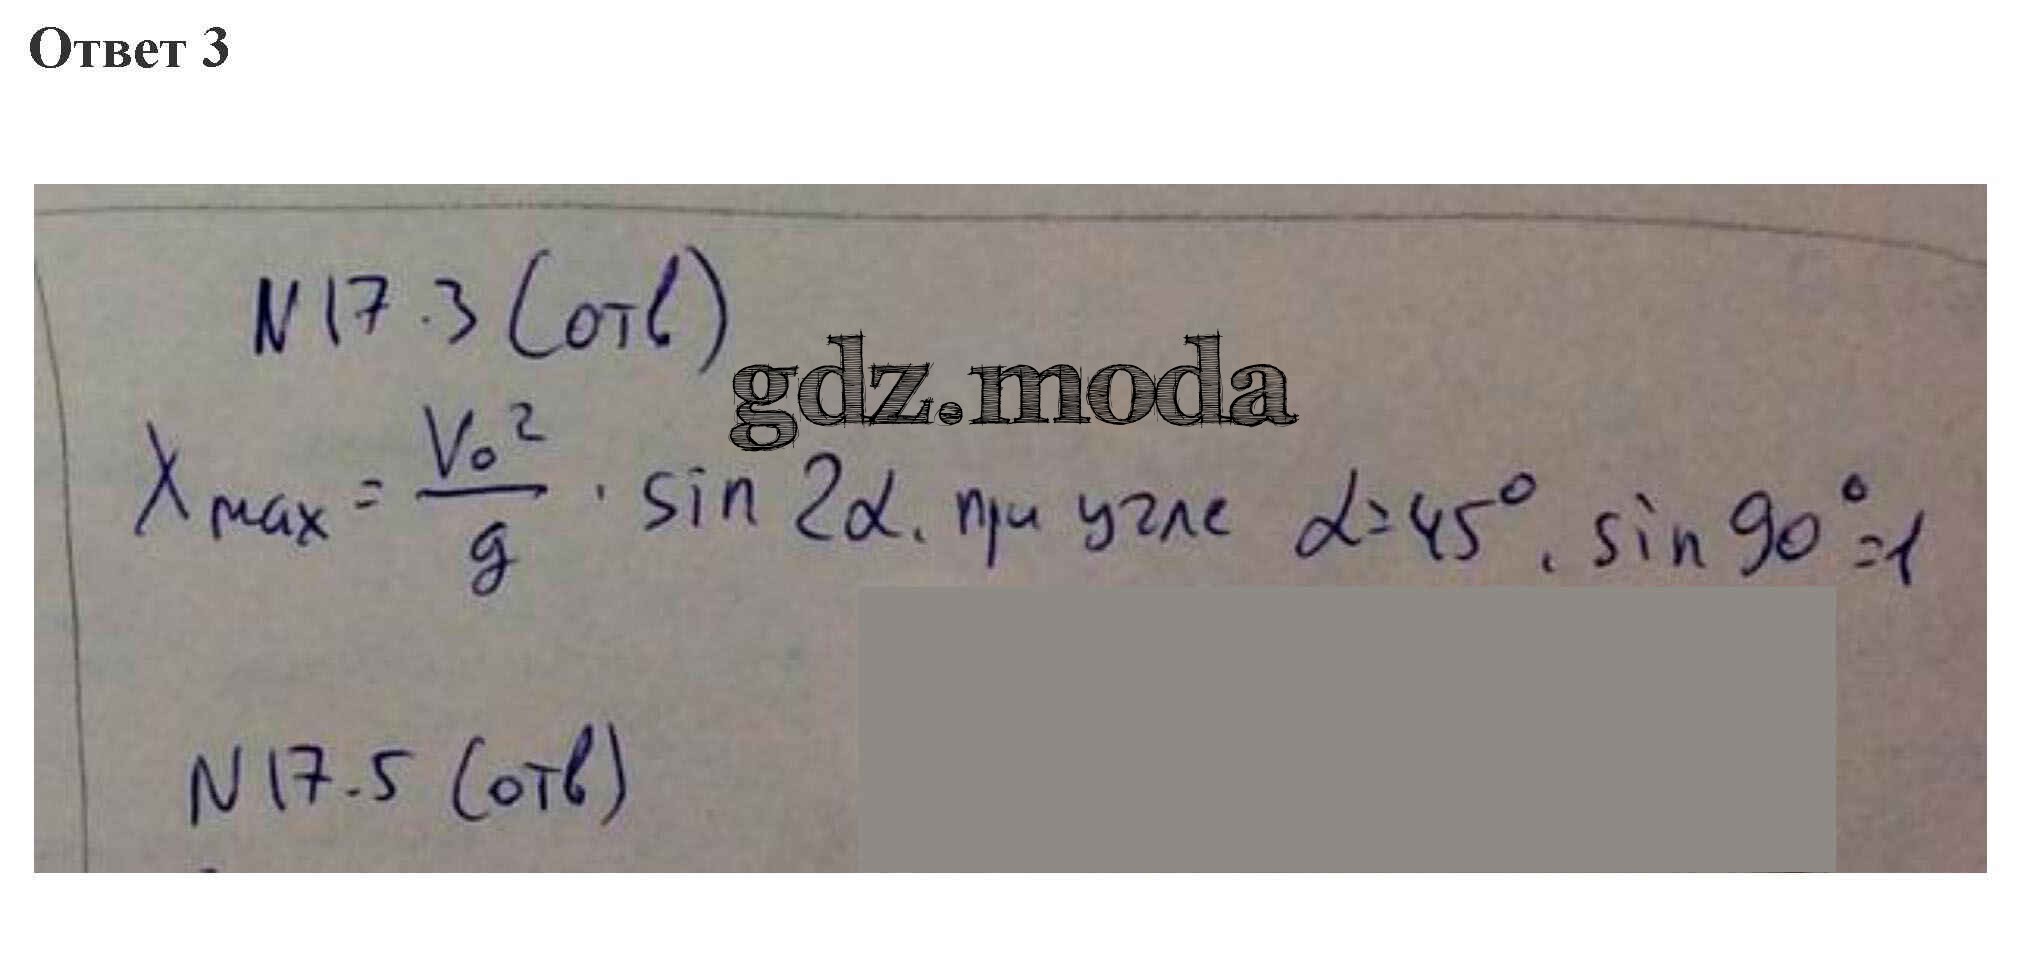 Ответ 3
N 17.3 (отв)
gdz.moda
Xmax = V₀²/g · sin 2α. при угле α=45°. sin 90°=1
N 17.5 (отв)